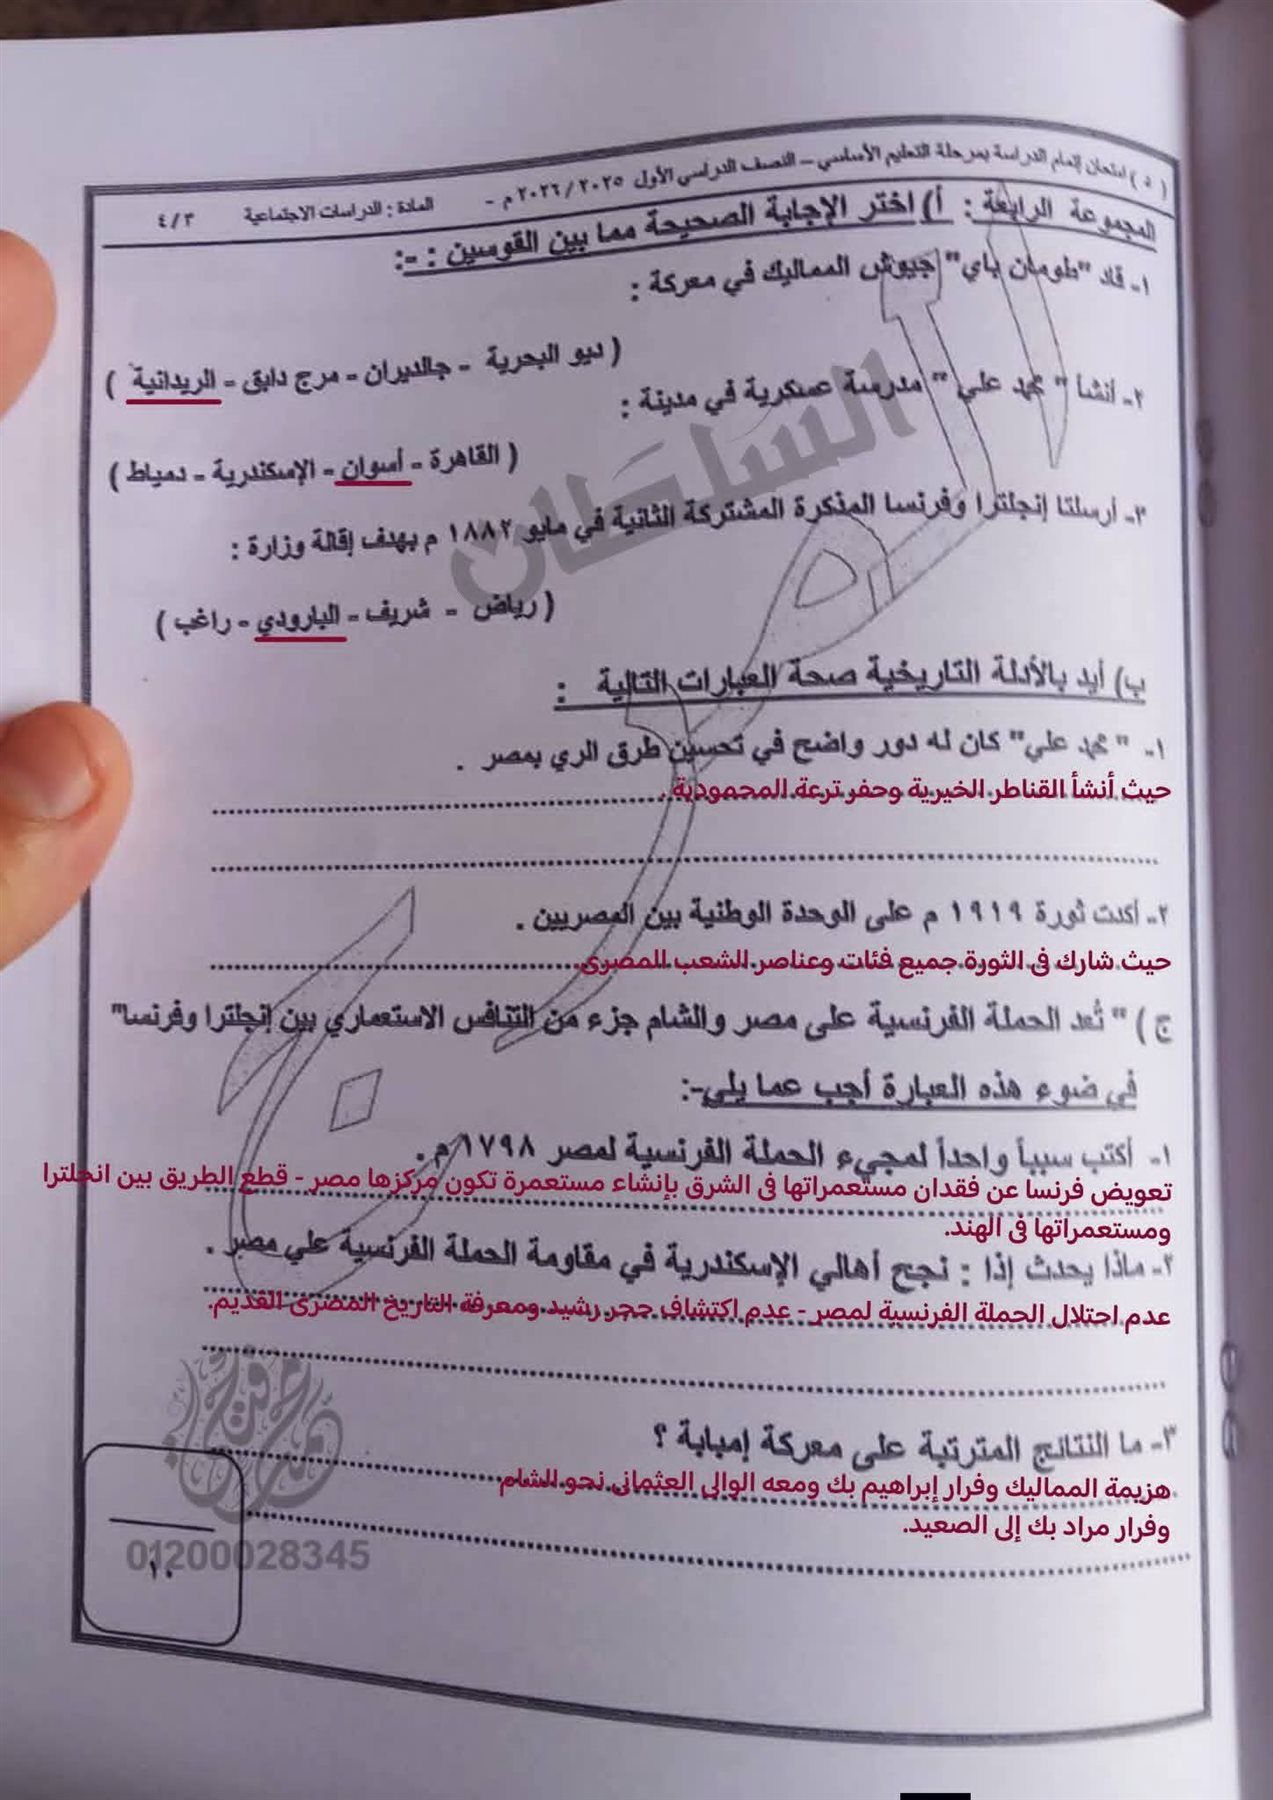 ( د ) امتحان إتمام الدراسة بمرحلة التعليم الأساسي – النصف الدراسي الأول ٢٠٢٥ / ٢٠٢٦ م - المادة : الدراسات الاجتماعية ٤/٣
المجموعة الرابعة : أ) اختر الإجابة الصحيحة مما بين القوسين : -:
١- قاد "طومان باي" جيوش المماليك في معركة :
( ديو البحرية - جالديران - مرج دابق - الريدانية )
٢- أنشأ " محمد علي " مدرسة عسكرية في مدينة :
( القاهرة - أسوان - الإسكندرية - دمياط )
٣- أرسلتا إنجلترا وفرنسا المذكرة المشتركة الثانية في مايو ١٨٨٢ م بهدف إقالة وزارة :
( رياض - شريف - البارودي - راغب )
ب) أيد بالأدلة التاريخية صحة العبارات التالية :
١- " محمد علي" كان له دور واضح في تحسين طرق الري بمصر .
حيث أنشأ القناطر الخيرية وحفر ترعة المحمودية .
٢- أكدت ثورة ١٩١٩ م على الوحدة الوطنية بين المصريين .
حيث شارك فى الثورة جميع فئات وعناصر الشعب المصرى
ج ) " تُعد الحملة الفرنسية على مصر والشام جزء من التنافس الاستعماري بين إنجلترا وفرنسا"
في ضوء هذه العبارة أجب عما يلي-:
١- أكتب سبباً واحداً لمجيء الحملة الفرنسية لمصر ١٧٩٨ م .
تعويض فرنسا عن فقدان مستعمراتها فى الشرق بإنشاء مستعمرة تكون مركزها مصر - قطع الطريق بين انجلترا
ومستعمراتها فى الهند.
٢- ماذا يحدث إذا : نجح أهالي الإسكندرية في مقاومة الحملة الفرنسية علي مصر .
عدم احتلال الحملة الفرنسية لمصر - عدم اكتشاف حجر رشيد ومعرفة التاريخ المصرى القديم.
٣- ما النتائج المترتبة على معركة إمبابة ؟
هزيمة المماليك وفرار إبراهيم بك ومعه الوالى العثمانى نحو الشام
وفرار مراد بك إلى الصعيد.
١٠
السلطان
01200028345